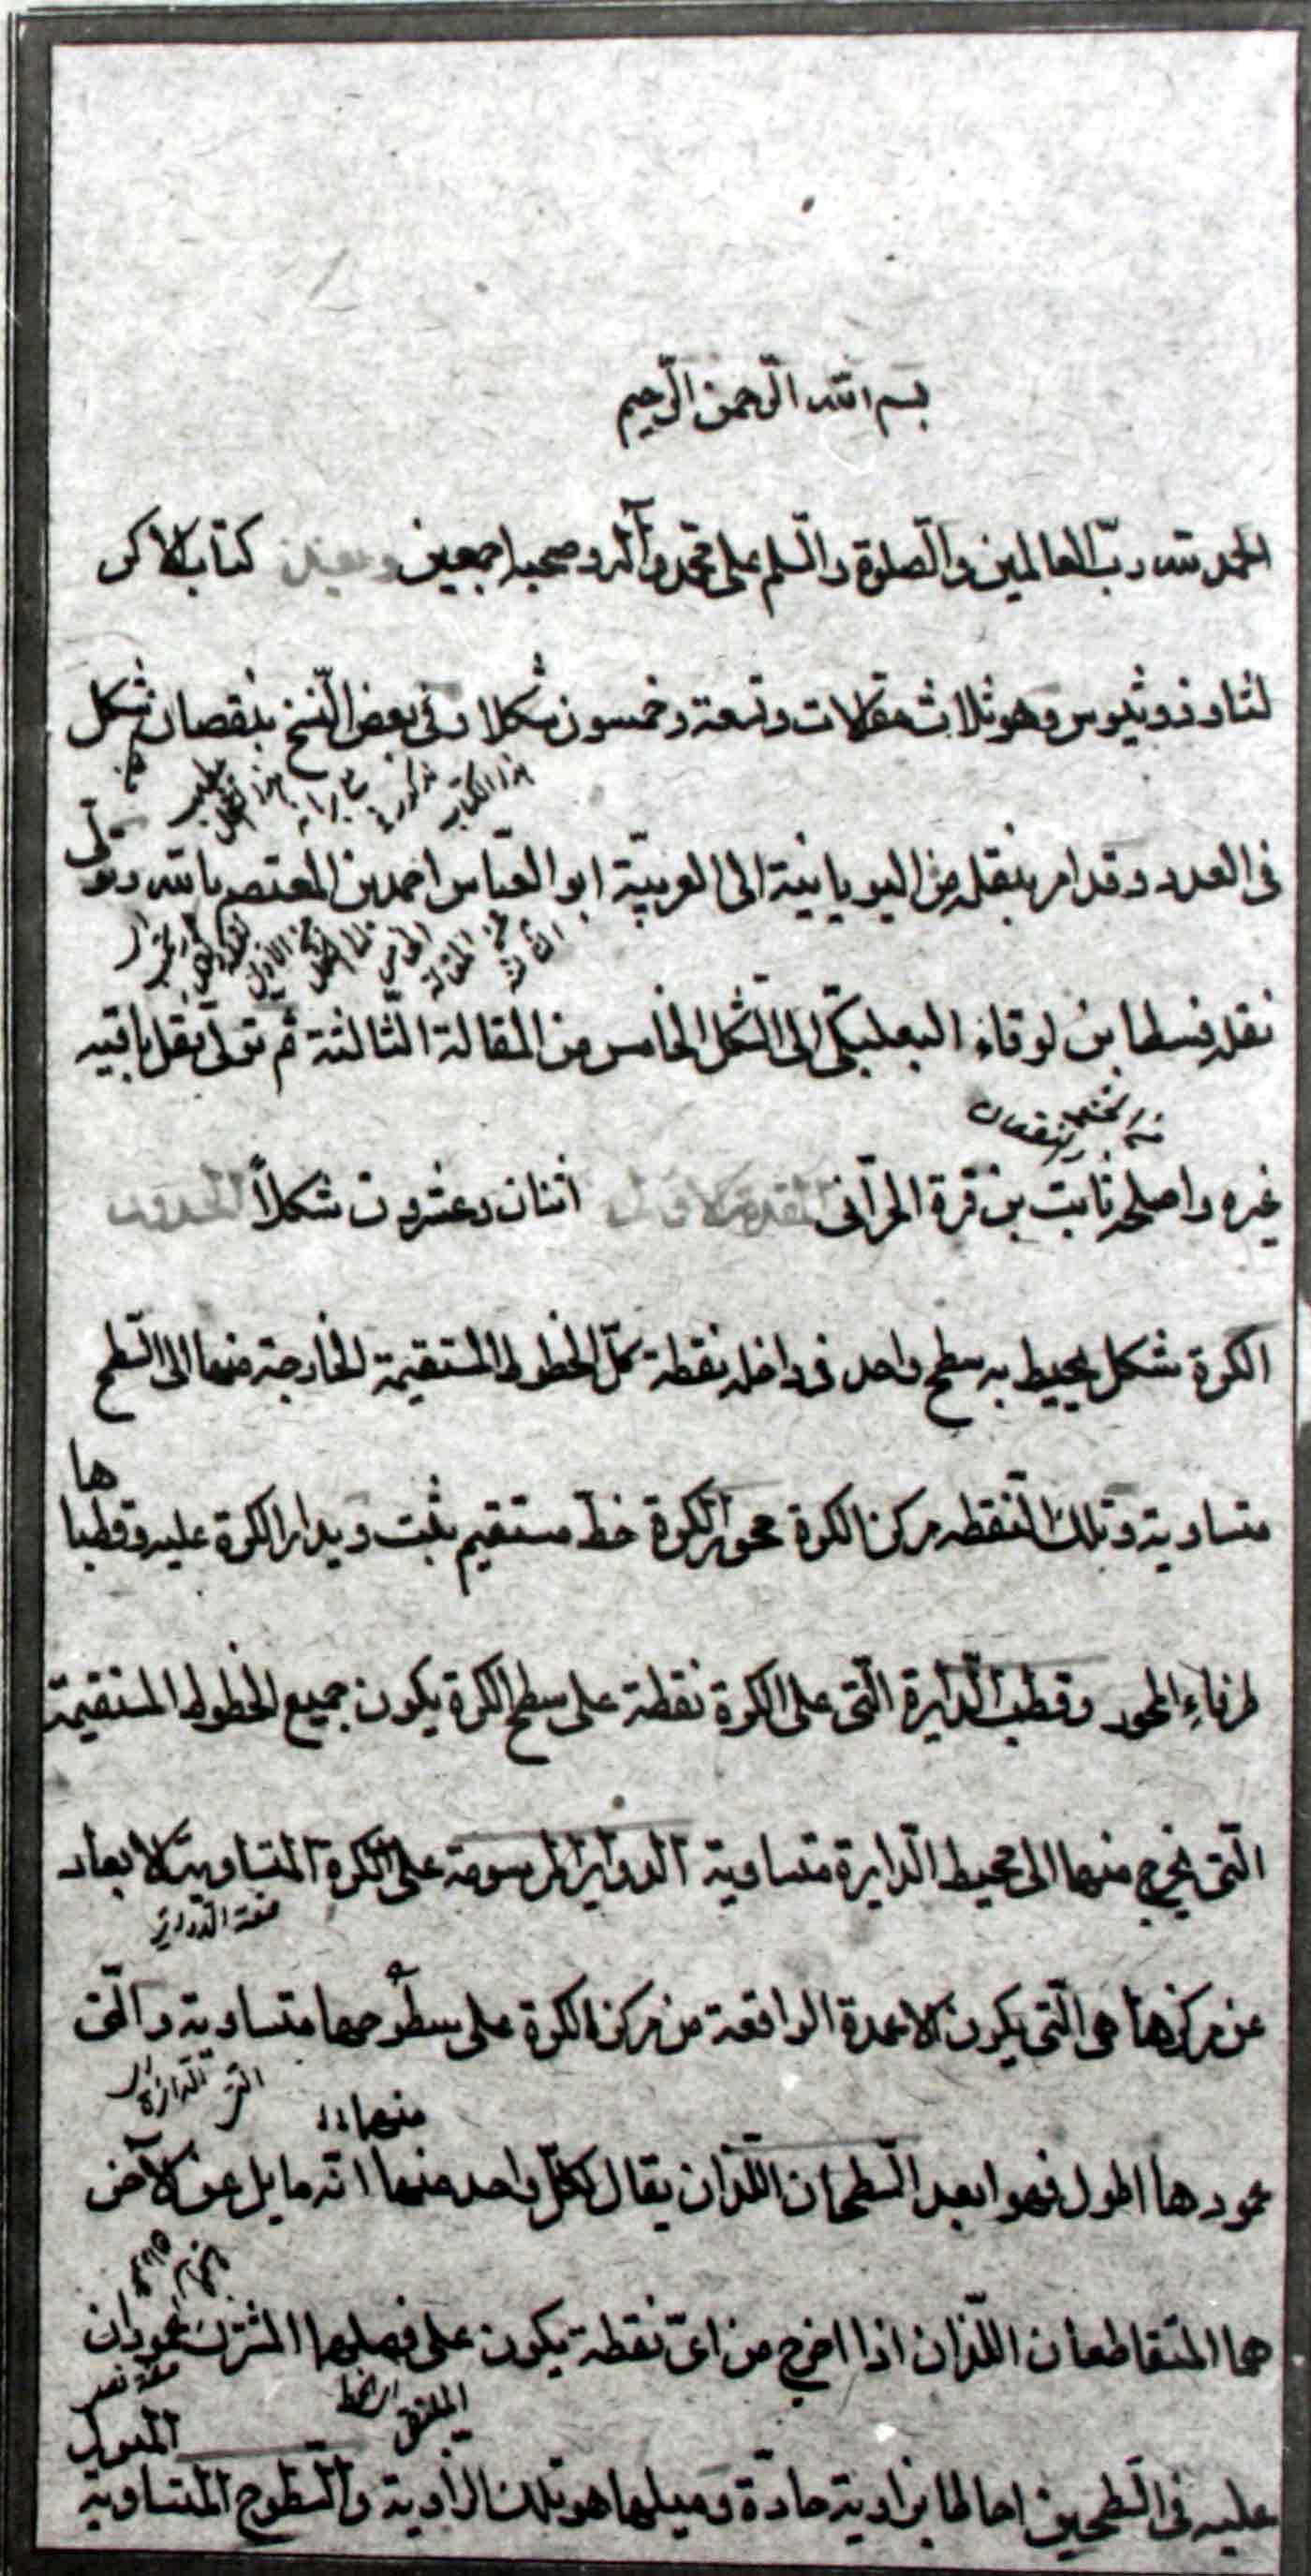 بسم الله الرّحمن الرّحيم
الحمد لله ربّ العالمين والصّلوة والسّلم على محمّد وآله وصحبه اجمعين وبعد كتاب الاكر
لثاوذوثيوس وهو ثلاث مقالات وتسعة وخمسون شكلا و فى بعض النّسخ بنقصان شكل
فى العدد وقد امر بنقله من اليويانية الى العربيّة ابو العبّاس احمد بن المعتصم بالله وتولّى
نقله قسطا بن لوقاء البعلبكّى الى الشّكل الخامس من المقالة الثّالثة ثم تولّى نقل باقيه
غيره واصلحه ثابت بن قرة الحرّانى المقدمة الاولى اثنان وعشرون شكلاً الحدود
الكرة شكل يحيط به سطح واحد فى داخله نقطة كلّ الخطوط المستقيمة الخارجة منها الى السّطح
متساوية وتلك النّقطه مركز الكرة محور الكرة خطّ مستقيم يثبت ويدار الكرة عليه وقطباها
طرفاء المحور وقطب الدّايرة الّتى على الكرة نقطة على سطح الكرة يكون جميع الخطوط المستقيمة
الّتى يخرج منها الى محيط الدّايرة متساوية الدواير المرسومة على الكرة المتساوية الابعاد
صفة الدواير
عن مركزها هى الّتى يكون الاعمدة الواقعة من مركز الكرة على سطوحها متساوية والّتى
عمودها اطول فهو ابعد السّطحان اللّذان يقال لكلّ واحد منهما انّه مايل عن الآخر
هما المتقاطعان اللّذان اذا اخرج من اىّ نقطة يكون على فصلهما المشترك عمودان
عليه فى السّطحين احاطا بزاوية حادّة وميلهما هو تلك الزّاوية والسّطوح المتساوية الميول